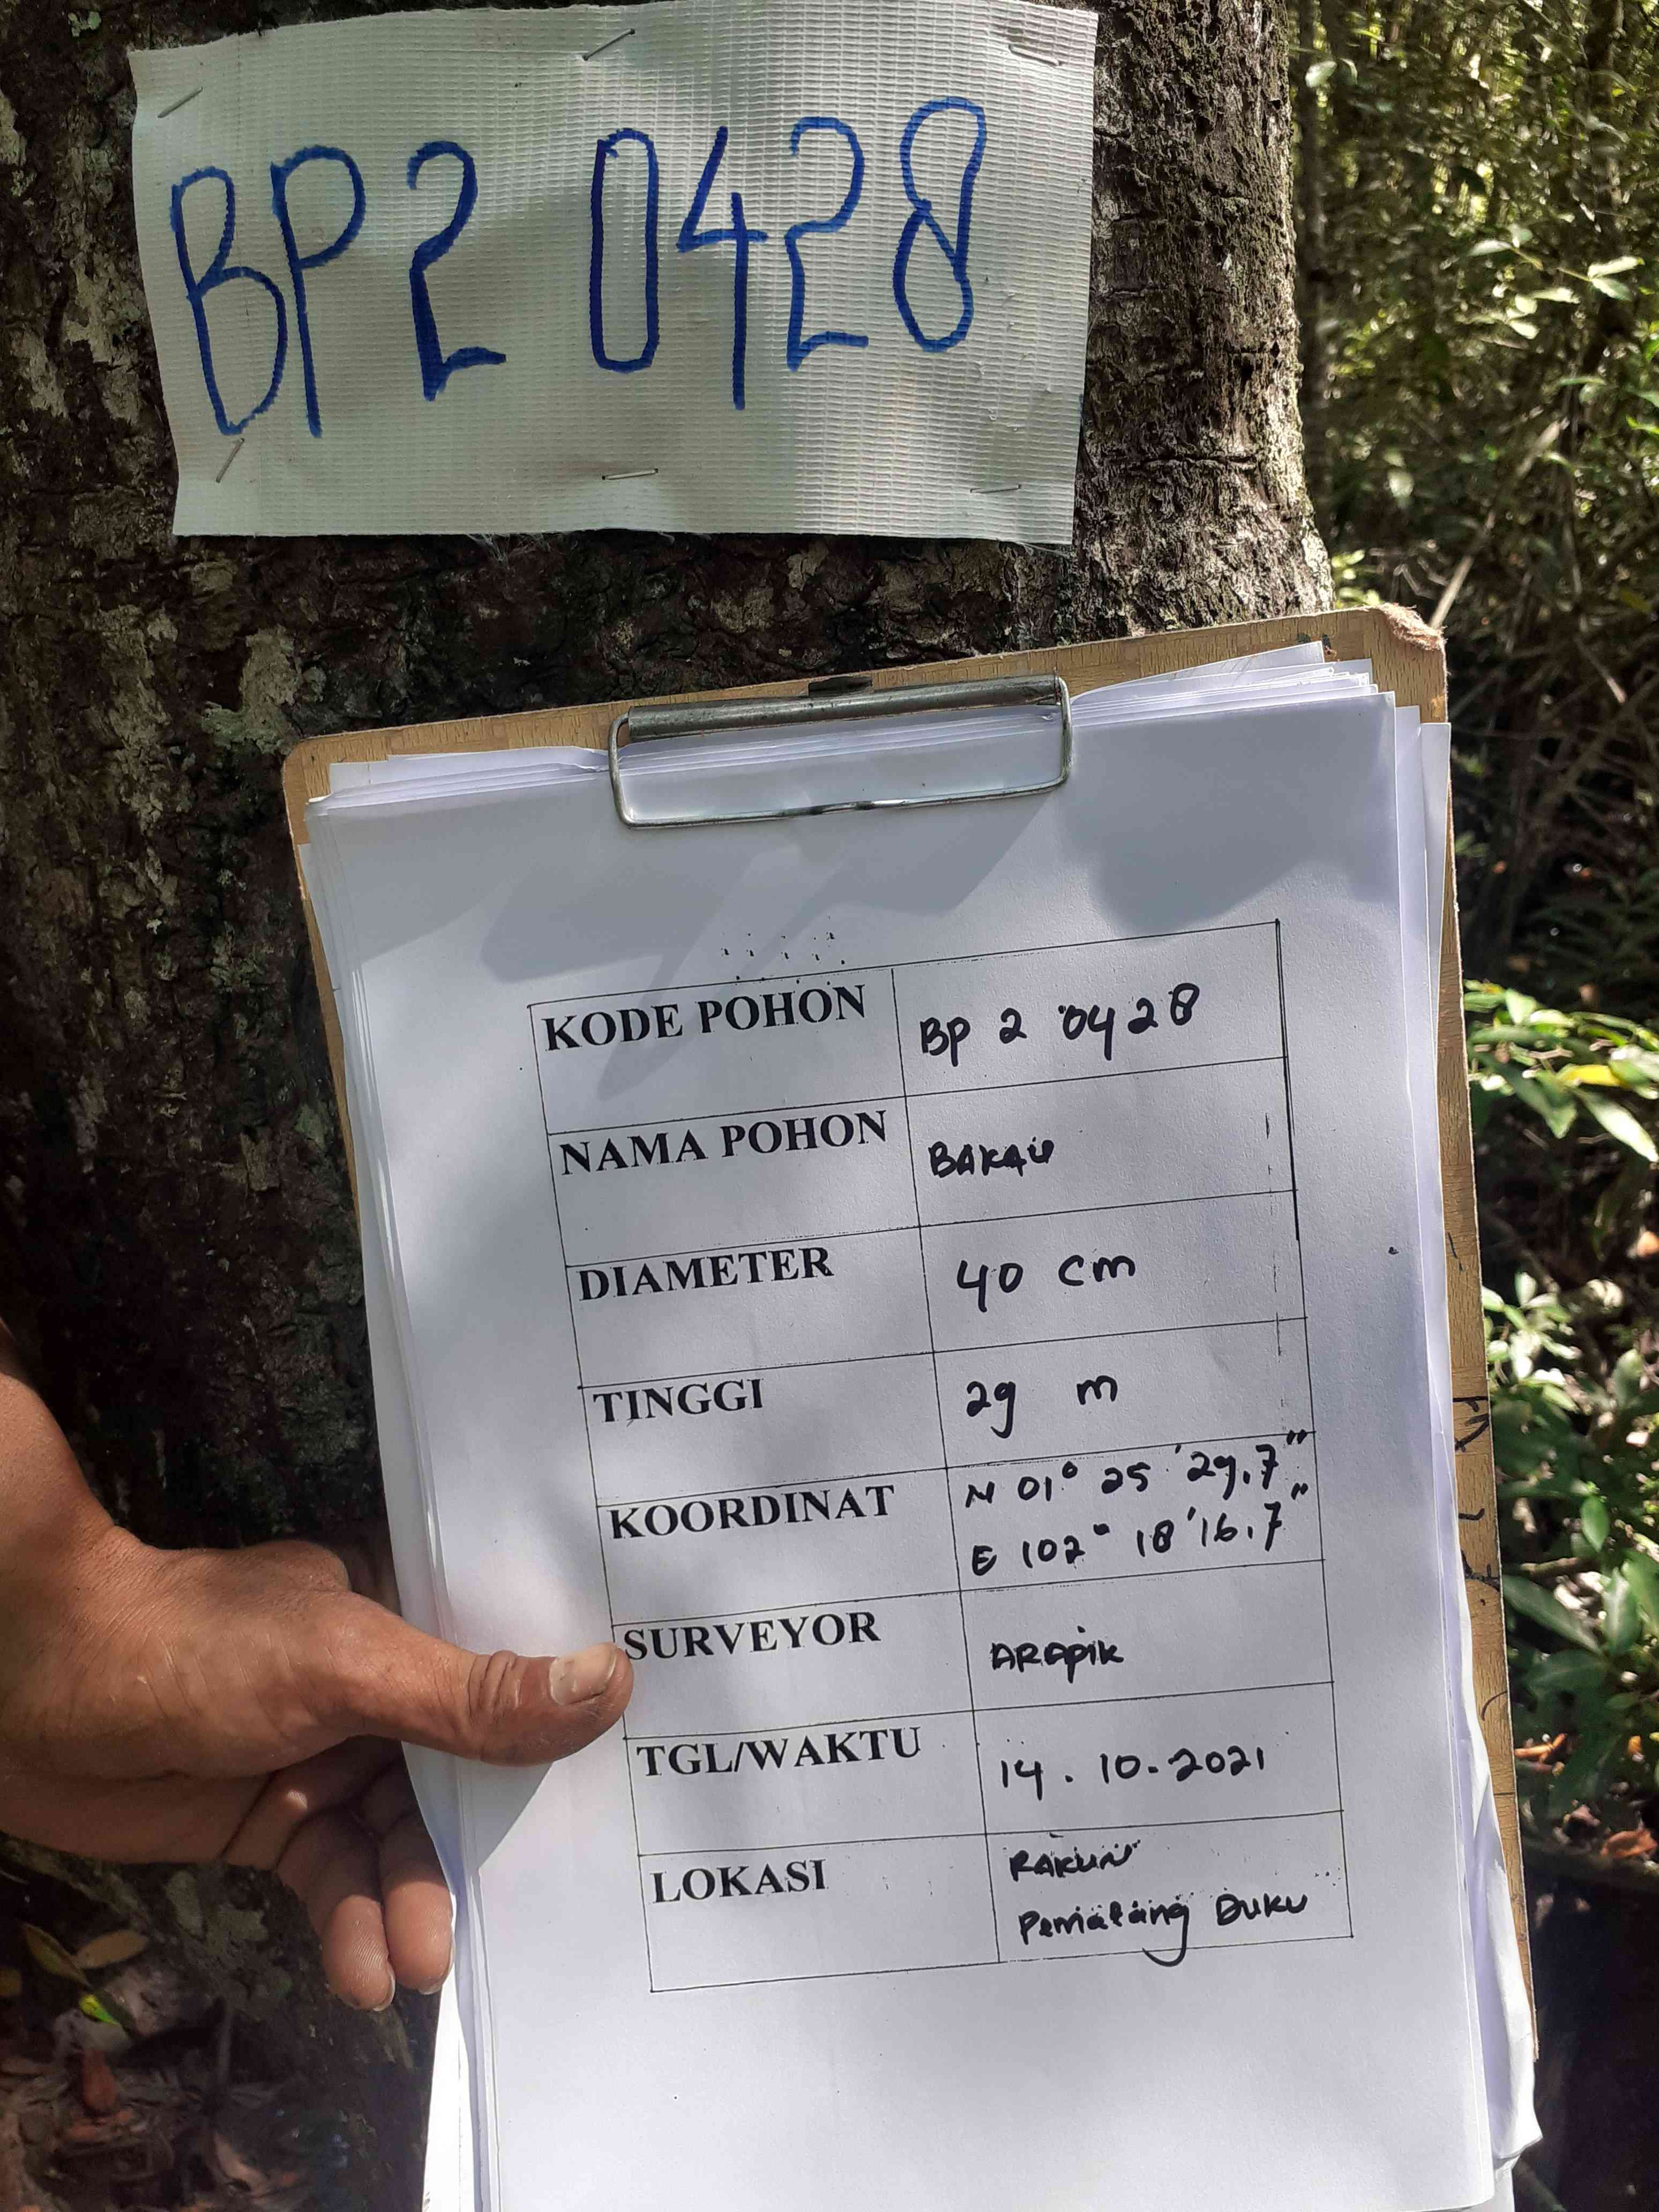 BP2 0428
KODE POHON BP 2 0428
NAMA POHON BAKAU
DIAMETER 40 cm
TINGGI 29 m
KOORDINAT N 01° 25 '29,7"
E 102° 18 '16,7"
SURVEYOR ARAPIK
TGL/WAKTU 14 . 10 - 2021
LOKASI RAKUN
Pematang Duku